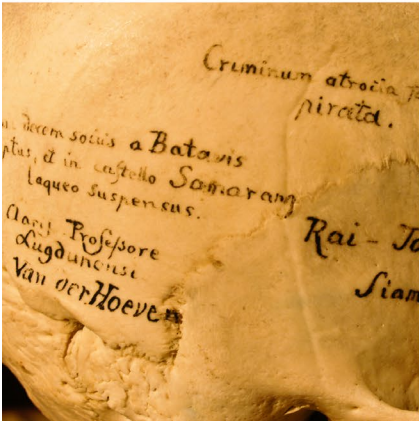 Criminum atrocia
pirata.
decem sociis a Batavis
ptus, et in castello Samarang
laqueo suspensus.
Clariſ Profeſsore
Lugdunensi
Van der Hoeven
Rai - Jo
Siam